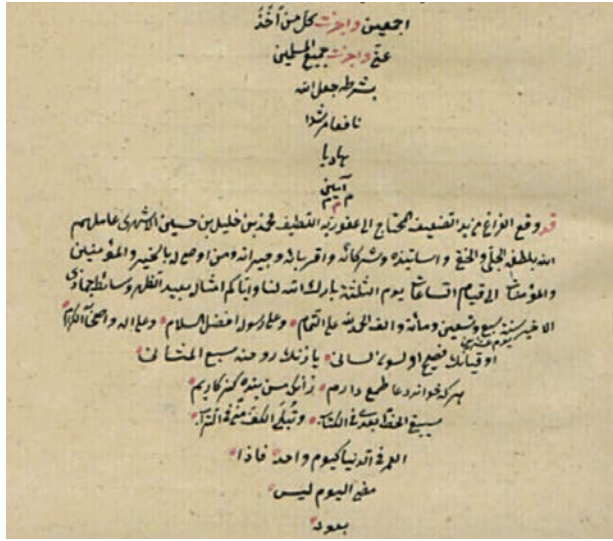 اجمعين واجزت كل من أخذ
عني واجزت جميع المسلمين
بشرطه جعل الله
نافعا مرشدا
هاديا
آمين
م م م
قد وقع الفراغ من يد الضعيف المحتاج الى عفو ربه اللطيف محمد بن خليل بن حسين الاشهرى عاملهم
الله بلطفه الجلى والخفى واساتيذه وشركائه واقربائه وجيرانه ومن اوصى له بالخير والمؤمنين
والمؤمنات الى قيام الساعات يوم الثلثة بارك الله لنا واياكم امثاله بعيد الظهر وسائط جمادى
الاخير سنة سبع وتسعين ومائة والف الحمد لله على التمام وعلى رسوله افضل السلام وعلى اله واصحابه الكرام
كيوم عشرين
او قيانك فصيح اولسون لسانى يازنك روحنه سبع المثانى
هركه خواند دعا طمع دارم زانكه من بنده كنه كاريم
سيبقى الخط بعدى فى الكتاب وتبلى الكف منى فى التراب
العمر فى الدنيا كيوم واحد فاذا
مضى اليوم ليس
يعود